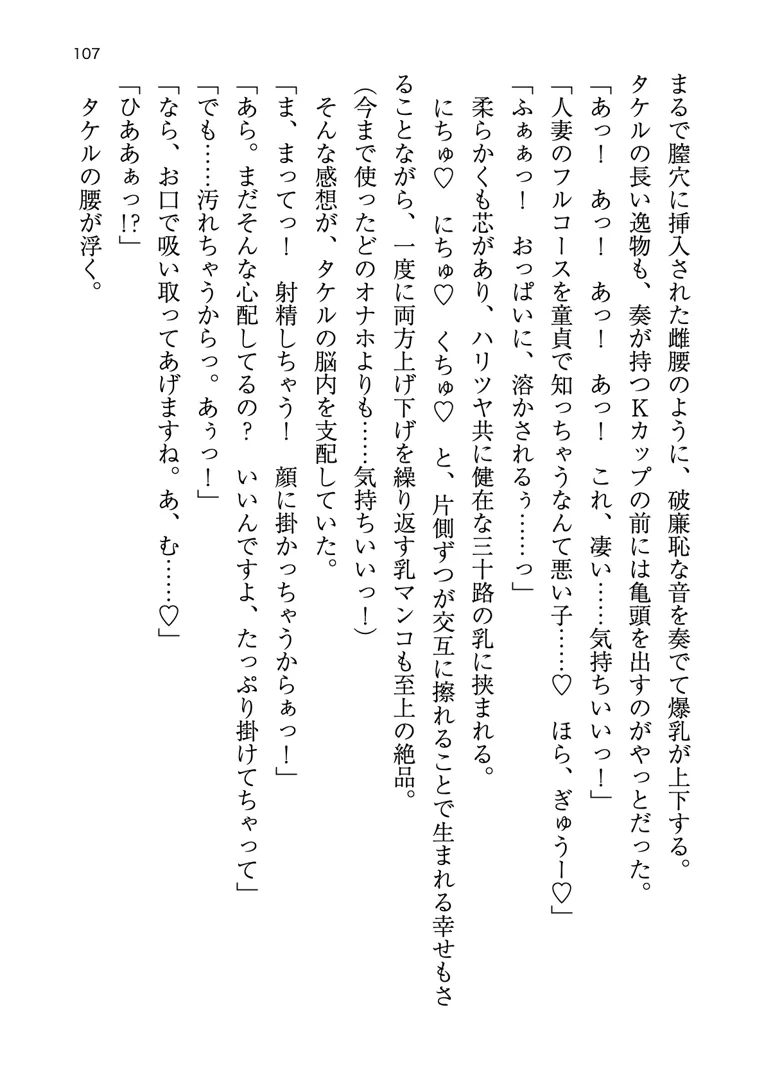 107
まるで膣穴に挿入された雌腰のように、破廉恥な音を奏でて爆乳が上下する。
タケルの長い逸物も、奏が持つKカップの前には亀頭を出すのがやっとだった。
「あっ！　あっ！　あっ！　あっ！　これ、凄い……気持ちいいっ！」
「人妻のフルコースを童貞で知っちゃうなんて悪い子……♡　ほら、ぎゅうー♡」
「ふぁぁっ！　おっぱいに、溶かされるぅ……っ」
柔らかくも芯があり、ハリツヤ共に健在な三十路の乳に挟まれる。
にちゅ♡　にちゅ♡　くちゅ♡　と、片側ずつが交互に擦れることで生まれる幸せもさ
ることながら、一度に両方上げ下げを繰り返す乳マンコも至上の絶品。
（今まで使ったどのオナホよりも……気持ちいいっ！）
そんな感想が、タケルの脳内を支配していた。
「ま、まってっ！　射精しちゃう！　顔に掛かっちゃうからぁっ！」
「あら。まだそんな心配してるの？　いいんですよ、たっぷり掛けてちゃって」
「でも……汚れちゃうからっ。あぅっ！」
「なら、お口で吸い取ってあげますね。あ、む……♡」
「ひああぁっ!?」
タケルの腰が浮く。